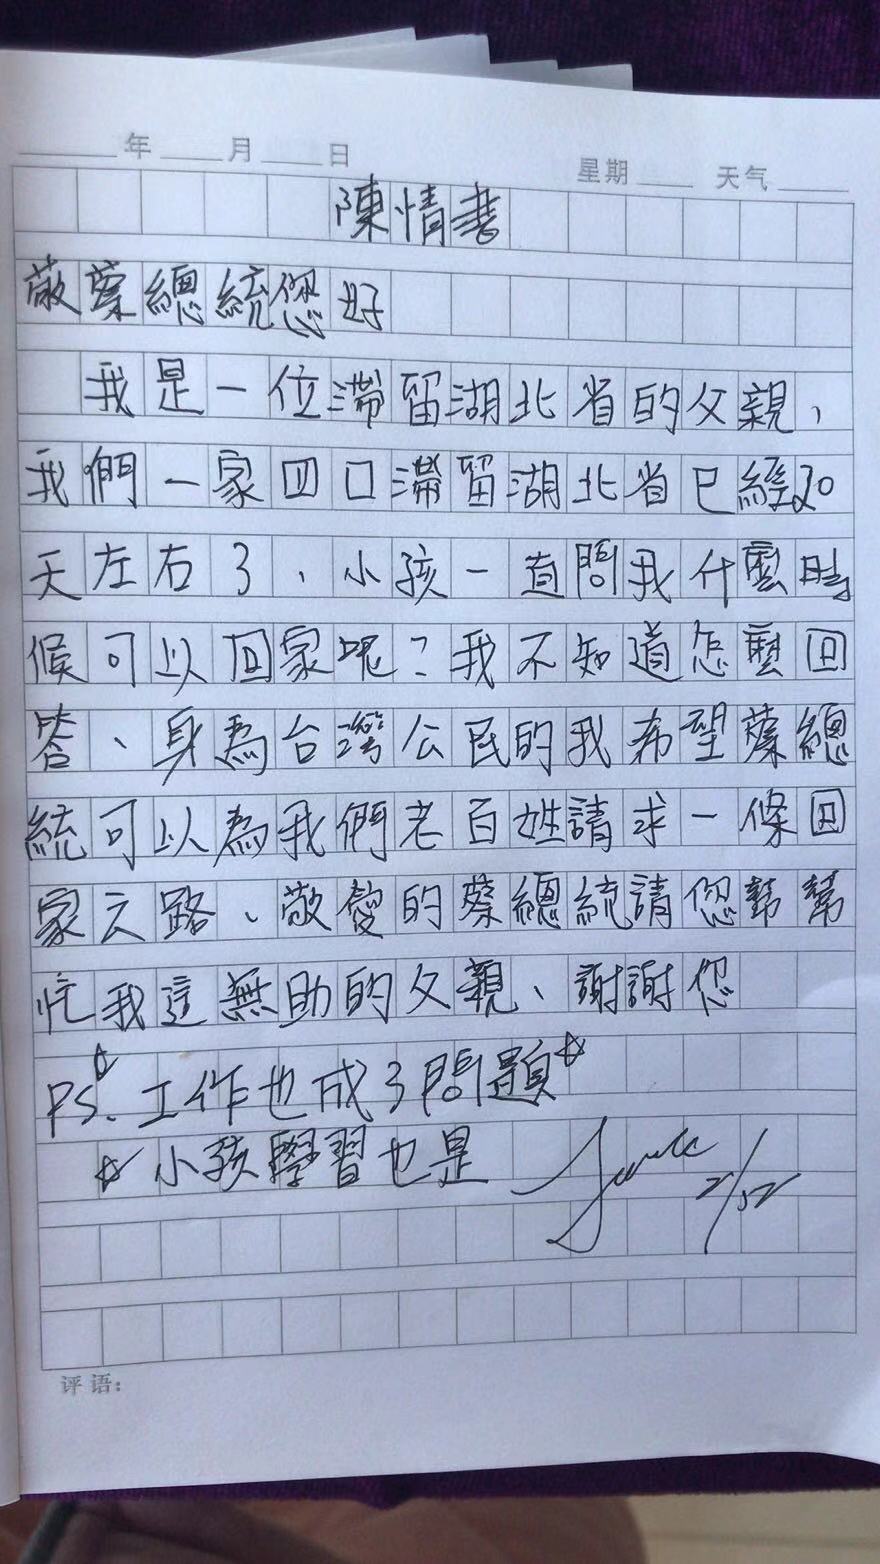 年 月 日 星期 天气
陳情書
敬蔡總統您好
我是一位滯留湖北省的父親、
我們一家四口滯留湖北省已經20
天左右了、小孩一直問我什麼時
候可以回家呢?我不知道怎麼回
答、身為台灣公民的我希望蔡總
統可以為我們老百姓請求一條回
家之路、敬愛的蔡總統請您幫幫
忙我這無助的父親、謝謝您
PS、☆工作也成了問題☆
☆小孩學習也是
评语: